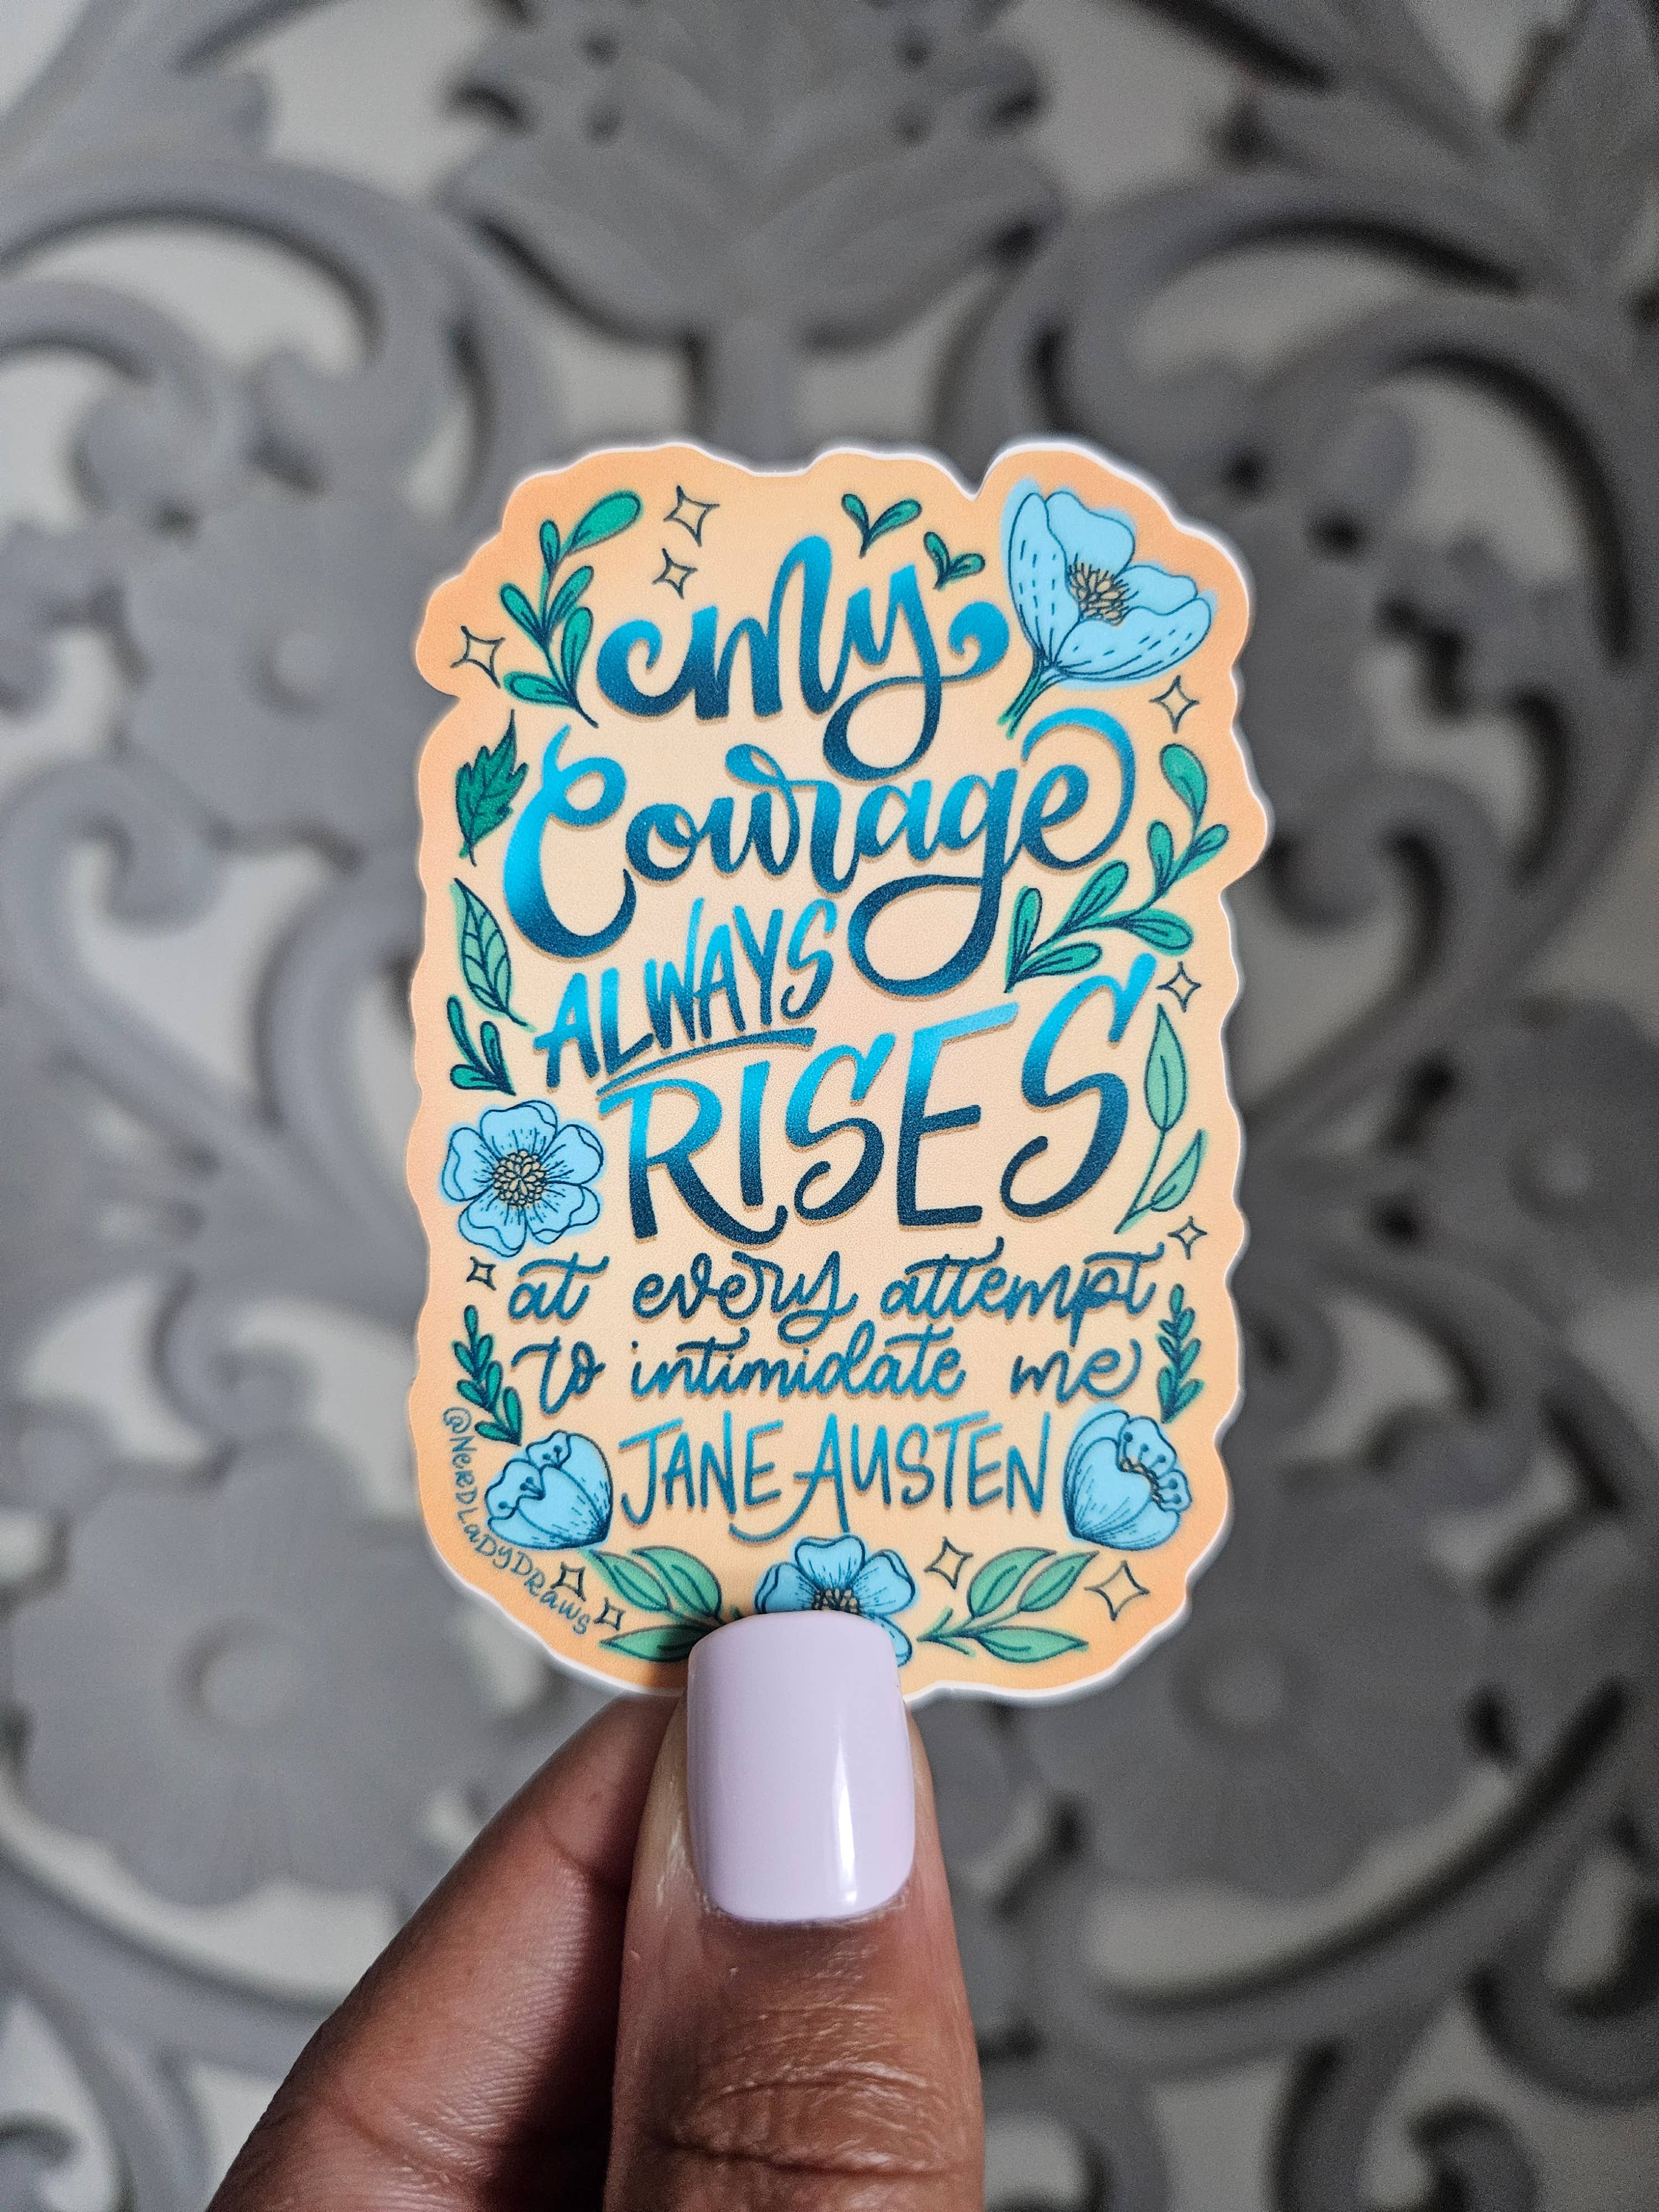 My
Courage
ALWAYS
RISES
at every attempt
to intimidate me
JANE AUSTEN
@NERDLADYDRAWS